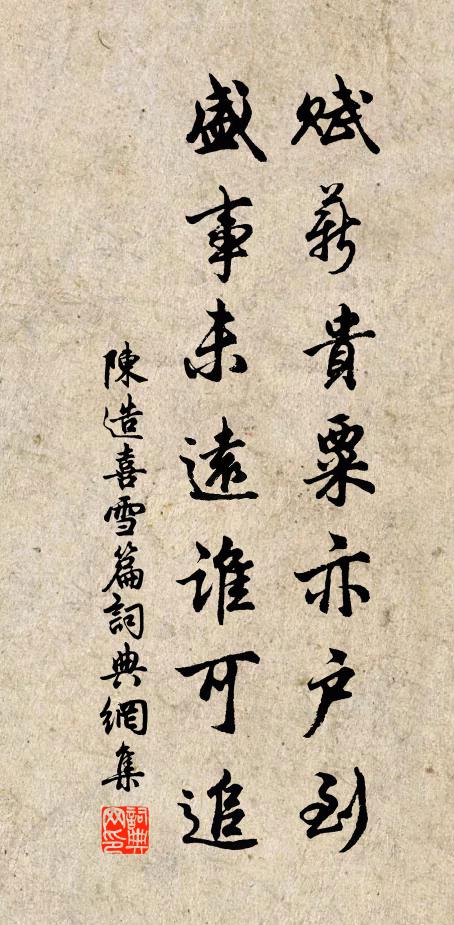 賦薪貴粟亦户到
盛事未遠誰可追
陳造喜雪篇詞典網集
詞典網印